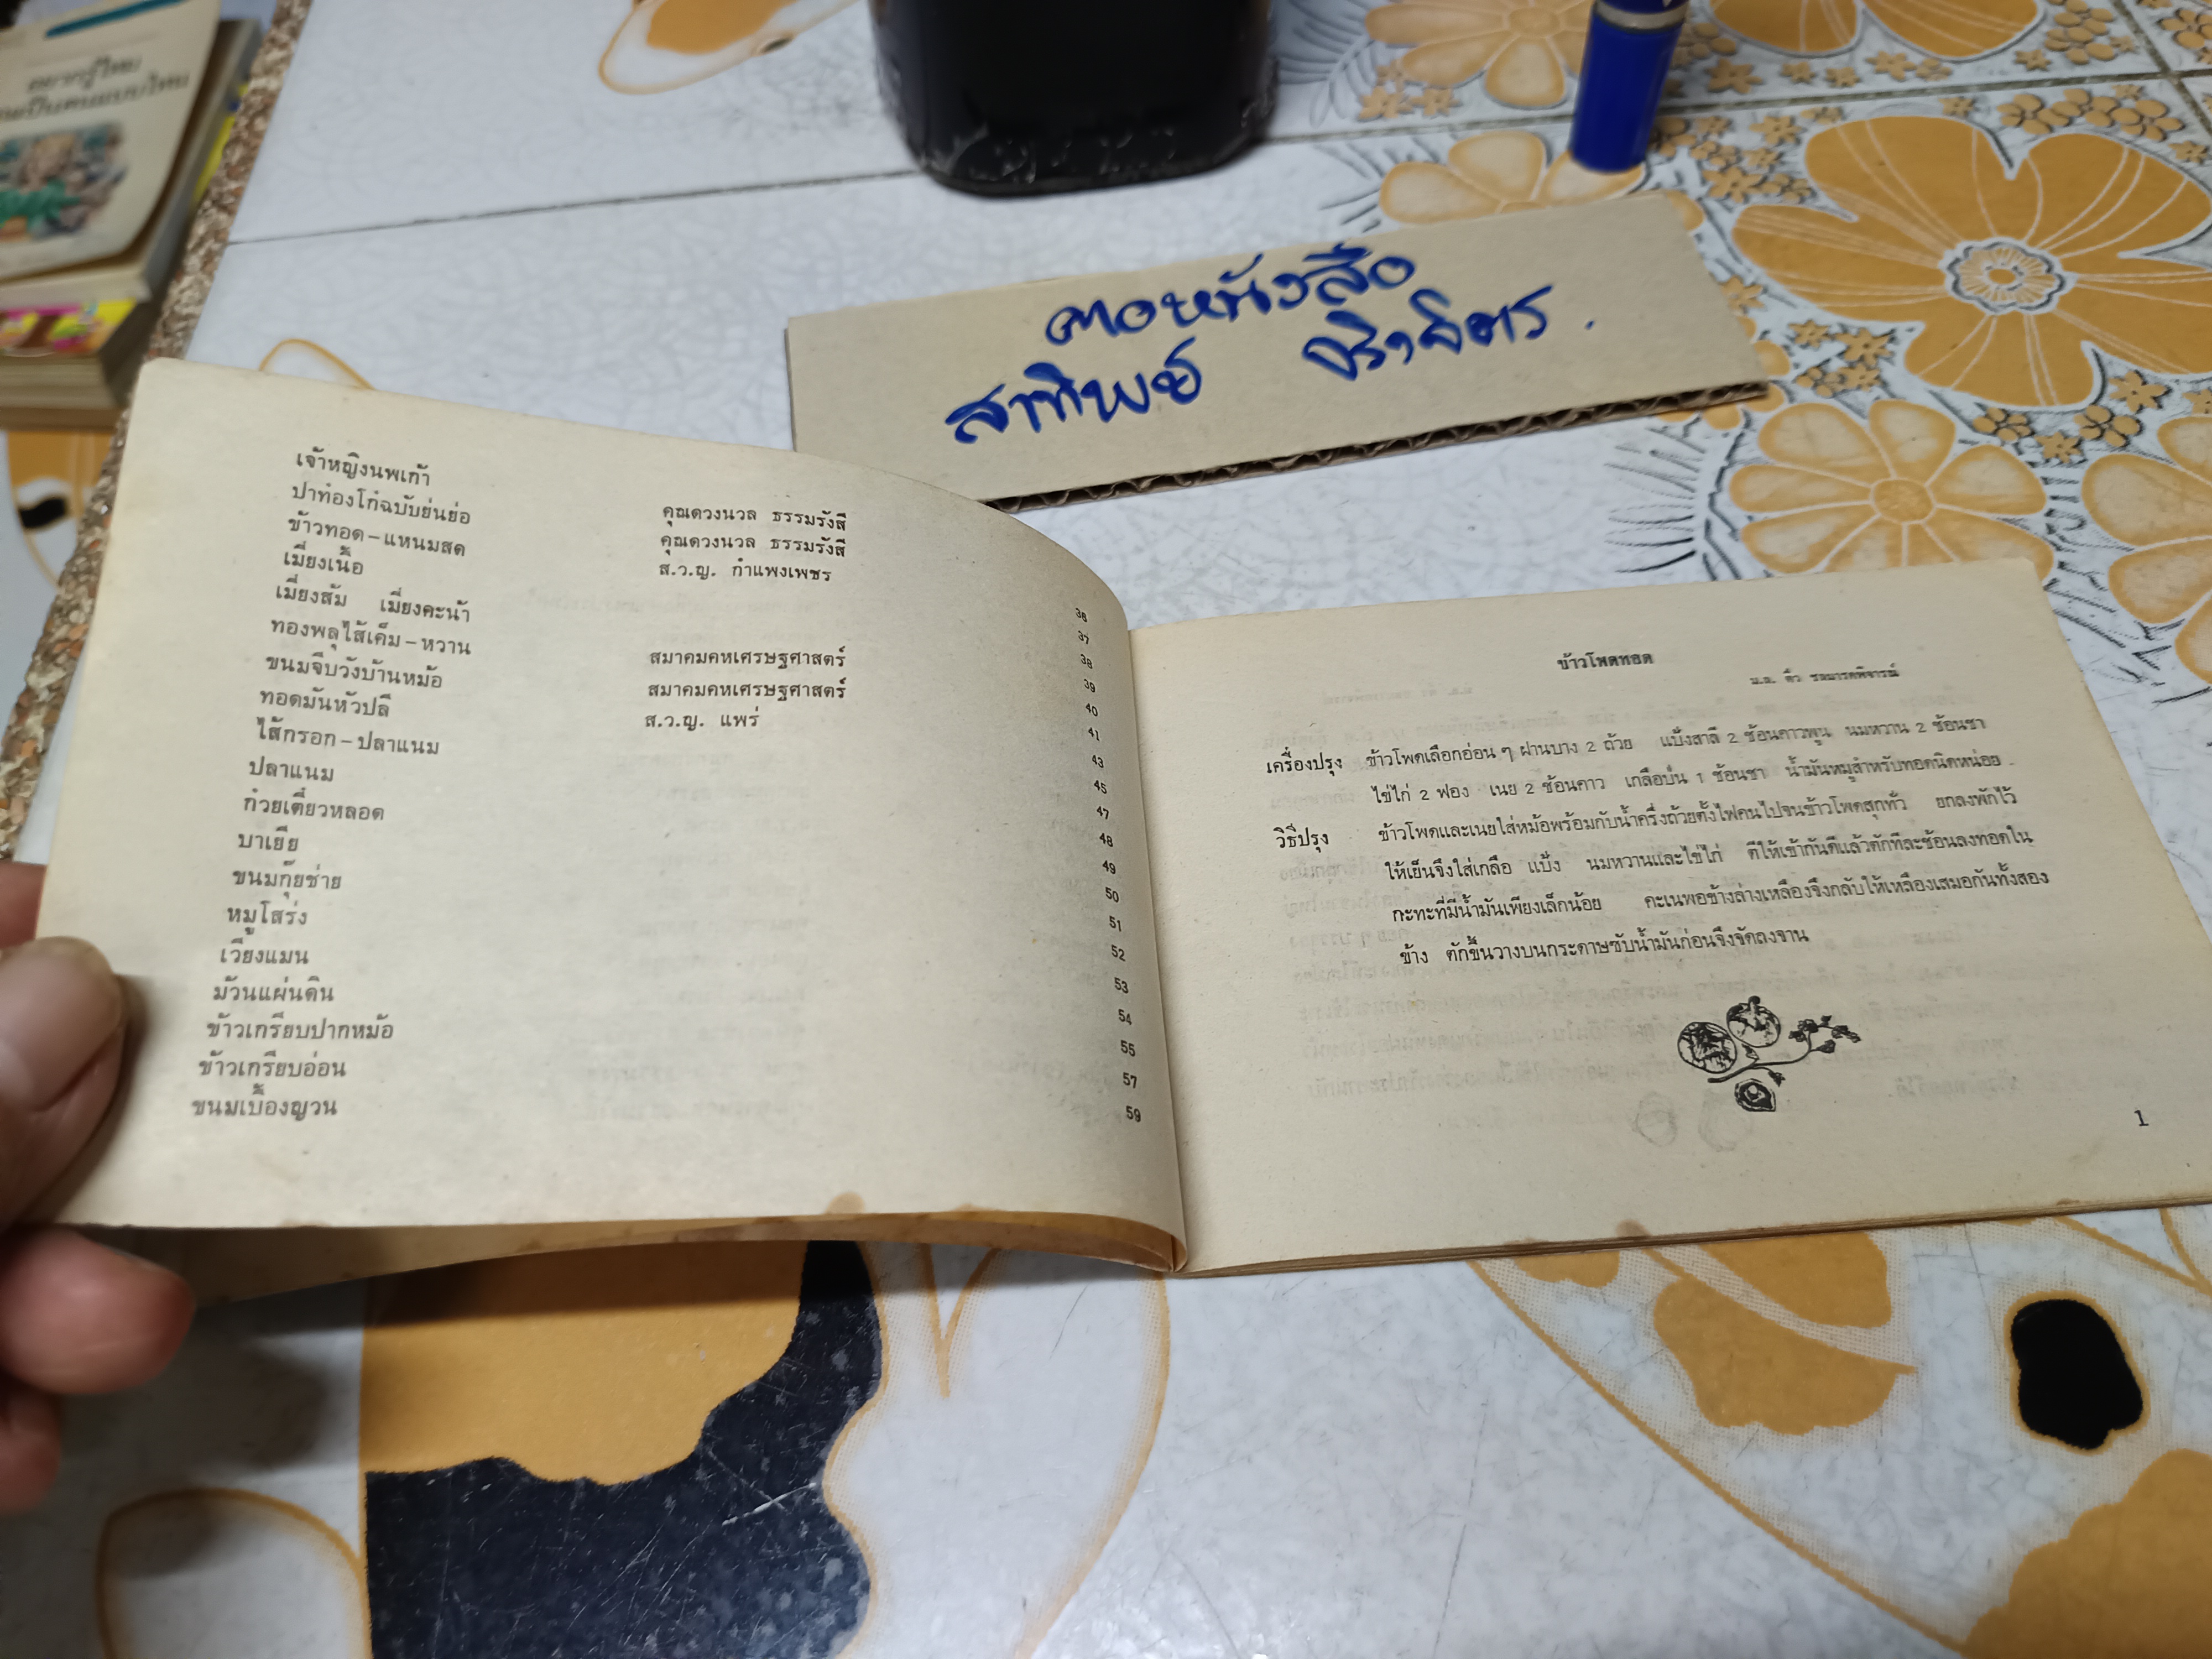 อยากรู้ไหม
คอหนังสือ
สาทิพย์
เจ้าหญิงนพเก้า
ปาท่องโก๋ฉบับย่นย่อ คุณดวงนวล ธรรมรังสี
ข้าวทอด–แหนมสด คุณดวงนวล ธรรมรังสี
เมี่ยงเนื้อ ส.ว.ญ. กำแพงเพชร
เมี่ยงส้ม เมี่ยงคะน้า
ทองพลุไส้เค็ม–หวาน สมาคมคหเศรษฐศาสตร์
ขนมจีบวังบ้านหม้อ สมาคมคหเศรษฐศาสตร์
ทอดมันหัวปลี ส.ว.ญ. แพร่
ไส้กรอก–ปลาแนม
ปลาแนม
ก๋วยเตี๋ยวหลอด
บาเยีย
ขนมกุ๊ยช่าย
หมูโสร่ง
เวียงแมน
ม้วนแผ่นดิน
ข้าวเกรียบปากหม้อ
ข้าวเกรียบอ่อน
ขนมเบื้องญวน
36
37
38
39
40
41
43
45
47
48
49
50
51
52
53
54
55
57
59
ข้าวโพดทอด
ม.ล. ติ๋ว ชลมารคพิจารณ์
เครื่องปรุง ข้าวโพดเลือกอ่อน ๆ ฝานบาง 2 ถ้วย แป้งสาลี 2 ช้อนคาวพูน นมหวาน 2 ช้อนชา
ไข่ไก่ 2 ฟอง เนย 2 ช้อนคาว เกลือป่น 1 ช้อนชา น้ำมันหมูสำหรับทอดนิดหน่อย
วิธีปรุง ข้าวโพดและเนยใส่หม้อพร้อมกับน้ำครึ่งถ้วยตั้งไฟคนไปจนข้าวโพดสุกทั่ว ยกลงพักไว้
ให้เย็นจึงใส่เกลือ แป้ง นมหวานและไข่ไก่ ตีให้เข้ากันดีแล้วตักทีละช้อนลงทอดใน
กะทะที่มีน้ำมันเพียงเล็กน้อย คะเนพอข้างล่างเหลืองจึงกลับให้เหลืองเสมอกันทั้งสอง
ข้าง ตักขึ้นวางบนกระดาษซับน้ำมันก่อนจึงจัดลงจาน
1